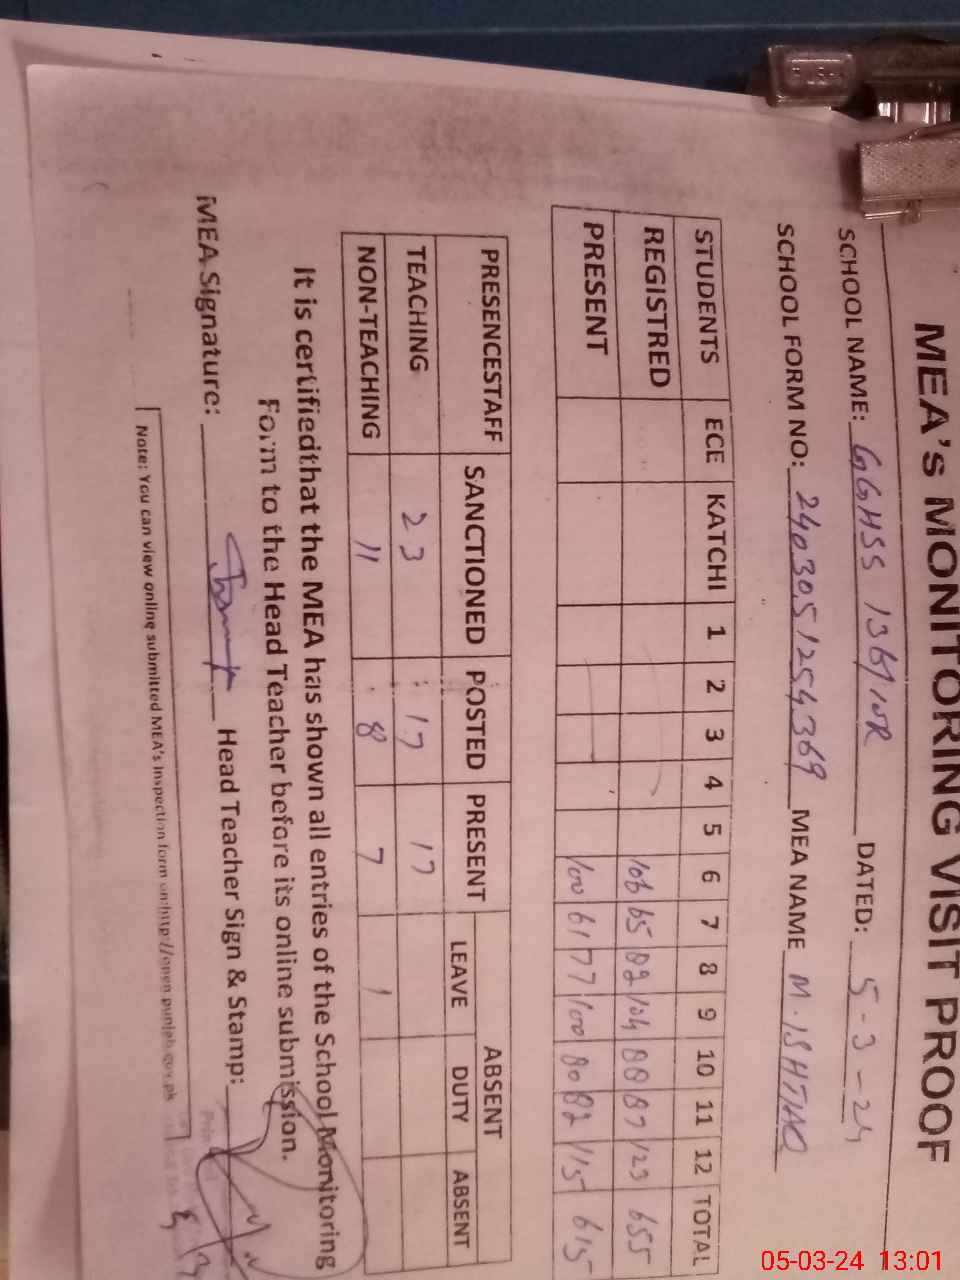 MEA's MONITORING VISIT PROOF
SCHOOL NAME: GGHSS 136/10R DATED: 5-3-24
SCHOOL FORM NO: 2403051254369 MEA NAME M.ISHTIAQ
STUDENTS ECE KATCHI 1 2 3 4 5 6 7 8 9 10 11 12 TOTAL
REGISTRED 106 65 82 104 88 87 123 655
PRESENT 100 61 77 100 80 82 115 615
PRESENCESTAFF SANCTIONED POSTED PRESENT ABSENT
LEAVE DUTY ABSENT
TEACHING 23 17 17
NON-TEACHING 11 8 7 1
It is certifiedthat the MEA has shown all entries of the School Monitoring
Form to the Head Teacher before its online submission.
MEA Signature: Head Teacher Sign & Stamp:
Note: You can view online submitted MEA's Inspection form on:http://open.punjab.gov.pk
05-03-24 13:01